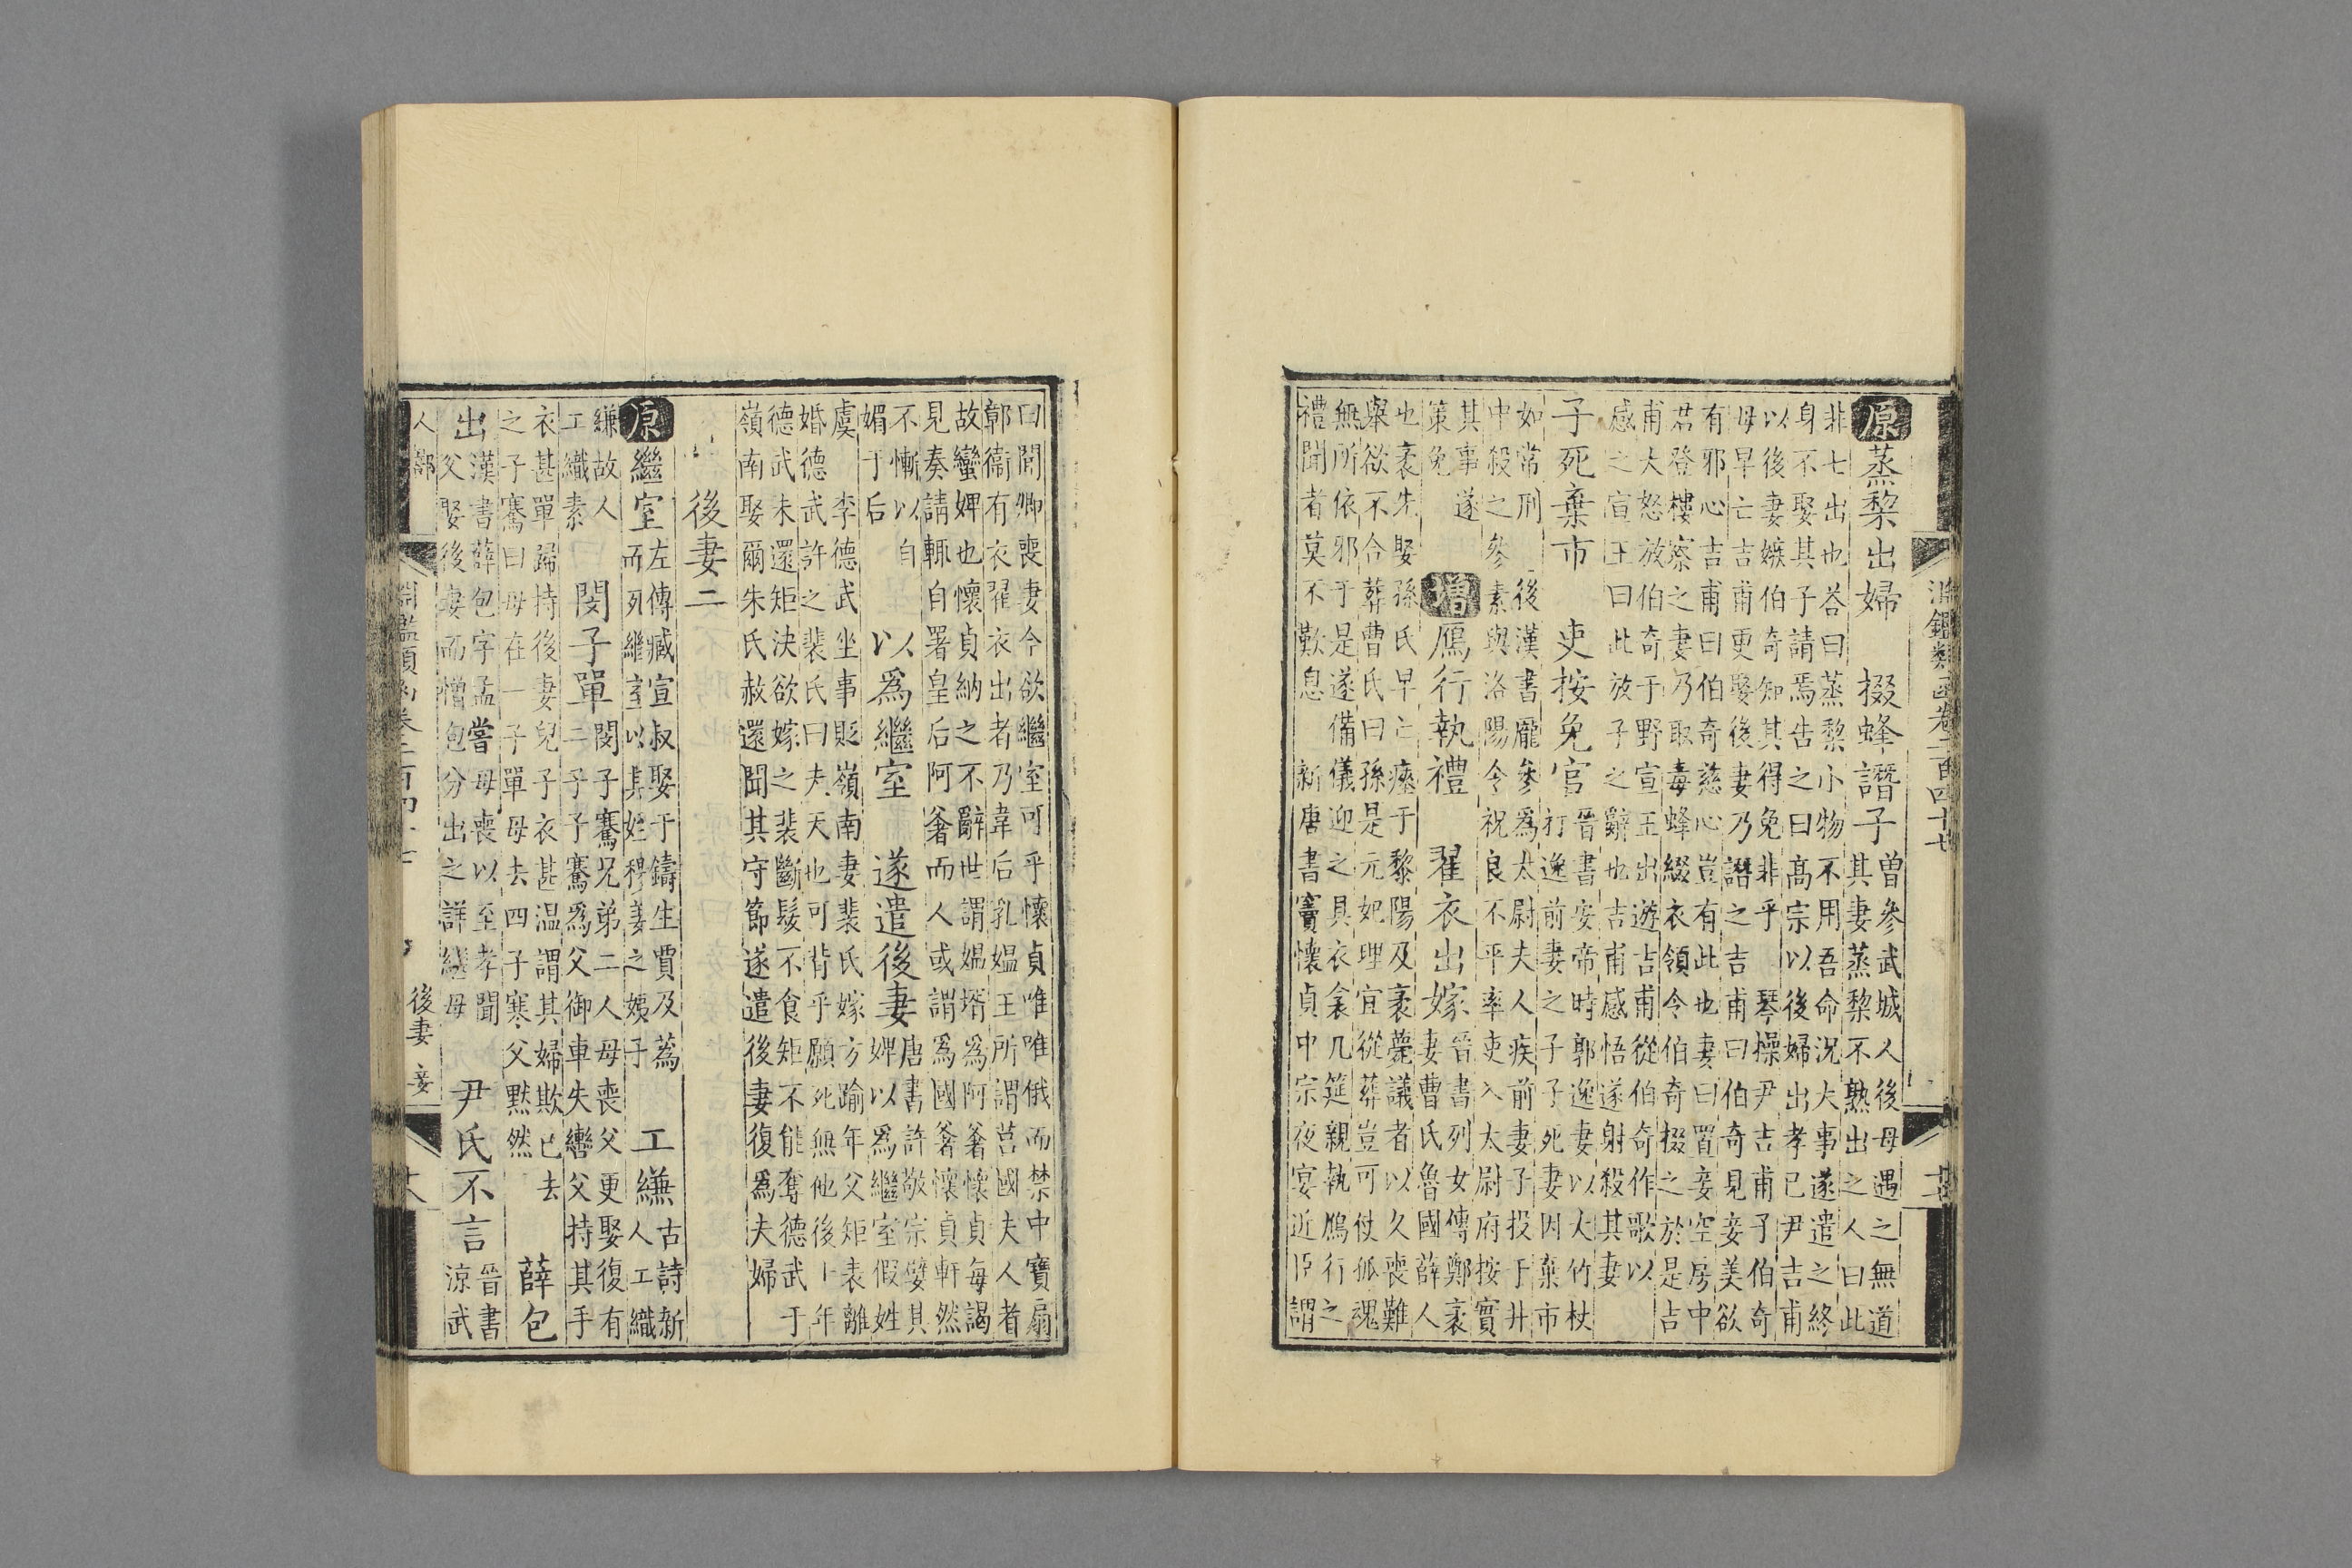 淵鑑類函卷二百四十七
原蒸黎出婦 掇蜂譖子
曽參武城人後母遇之無道
其妻蒸黎不熟出之人曰此
非七出也答曰蒸黎小物不用吾命况大事遂遣之終
身不娶其子請焉告之曰髙宗以後婦出孝已尹吉甫
以後妻嫉伯奇知其得免非乎 琴操尹吉甫子伯奇
母早亡吉甫更娶後妻乃譖之吉甫曰伯奇見妾美欲
有邪心吉甫曰伯奇慈心豈有此也妻曰置妾空房中
君登樓察之妻乃取毒蜂綴衣領令伯奇掇之於是吉
甫大怒放伯奇于野宣王出遊吉甫從伯奇作歌以
感之宣王曰此放子之辭也吉甫感悟遂射殺其妻
子死棄市 吏按免官
晉書安帝時郭逸妻以大竹杖
打逸前妻之子子死妻因棄市
如常刑 後漢書龎參為太尉夫人疾前妻子投于井
中殺之參素與洛陽令祝良不平率吏入太尉府按實
其事遂
策免
增鴈行執禮 翟衣出嫁
晉書列女傳鄭袤
妻曹氏魯國薛人
也袤先娶孫氏早亡瘞于黎陽及袤薨議者以久喪難
舉欲不合葬曹氏曰孫是元妃理宜從葬豈可使孤魂
無所依邪于是遂備儀迎之具衣衾几筵親執鴈行之
禮聞者莫不歎息 新唐書竇懷貞中宗夜宴近臣謂
曰聞卿喪妻今欲繼室可乎懷貞唯唯俄而禁中寶扇
鄣衞有衣翟衣出者乃韋后乳媼王所謂莒國夫人者
故蠻婢也懷貞納之不辭世謂媼壻爲阿㸙懷貞每謁
見奏請輒自署皇后阿㸙而人或謂爲國㸙懷貞軒然
不慚以自
媚于后
以爲繼室 遂遣後妻
唐書許敬宗嬖其
婢以爲繼室假姓
虞 李德武坐事貶嶺南妻裴氏嫁方踰年父矩表離
婚德武許之裴氏曰夫天也可背乎願死無他後十年
德武未還矩決欲嫁之裴斷髮不食矩不能奪德武于
嶺南娶爾朱氏赦還聞其守節遂遣後妻復爲夫婦
後妻二
原繼室
左傳臧宣叔娶于鑄生賈及爲
而死繼室以其姪穆姜之姨子
工縑
古詩新
人工織
縑故人
工織素
閔子單
閔子騫兄弟二人母喪父更娶復有
二子子騫爲父御車失轡父持其手
衣甚單歸持後妻兒子衣甚溫謂其婦欺已去
之子騫曰母在一子單母去四子寒父黙然
薛包
出
漢書薛包字孟嘗母喪以至孝聞
父娶後妻而憎包分出之詳繼母
尹氏不言
晉書
涼武
人部
淵鑑類函卷二百四十七
後妻 妾